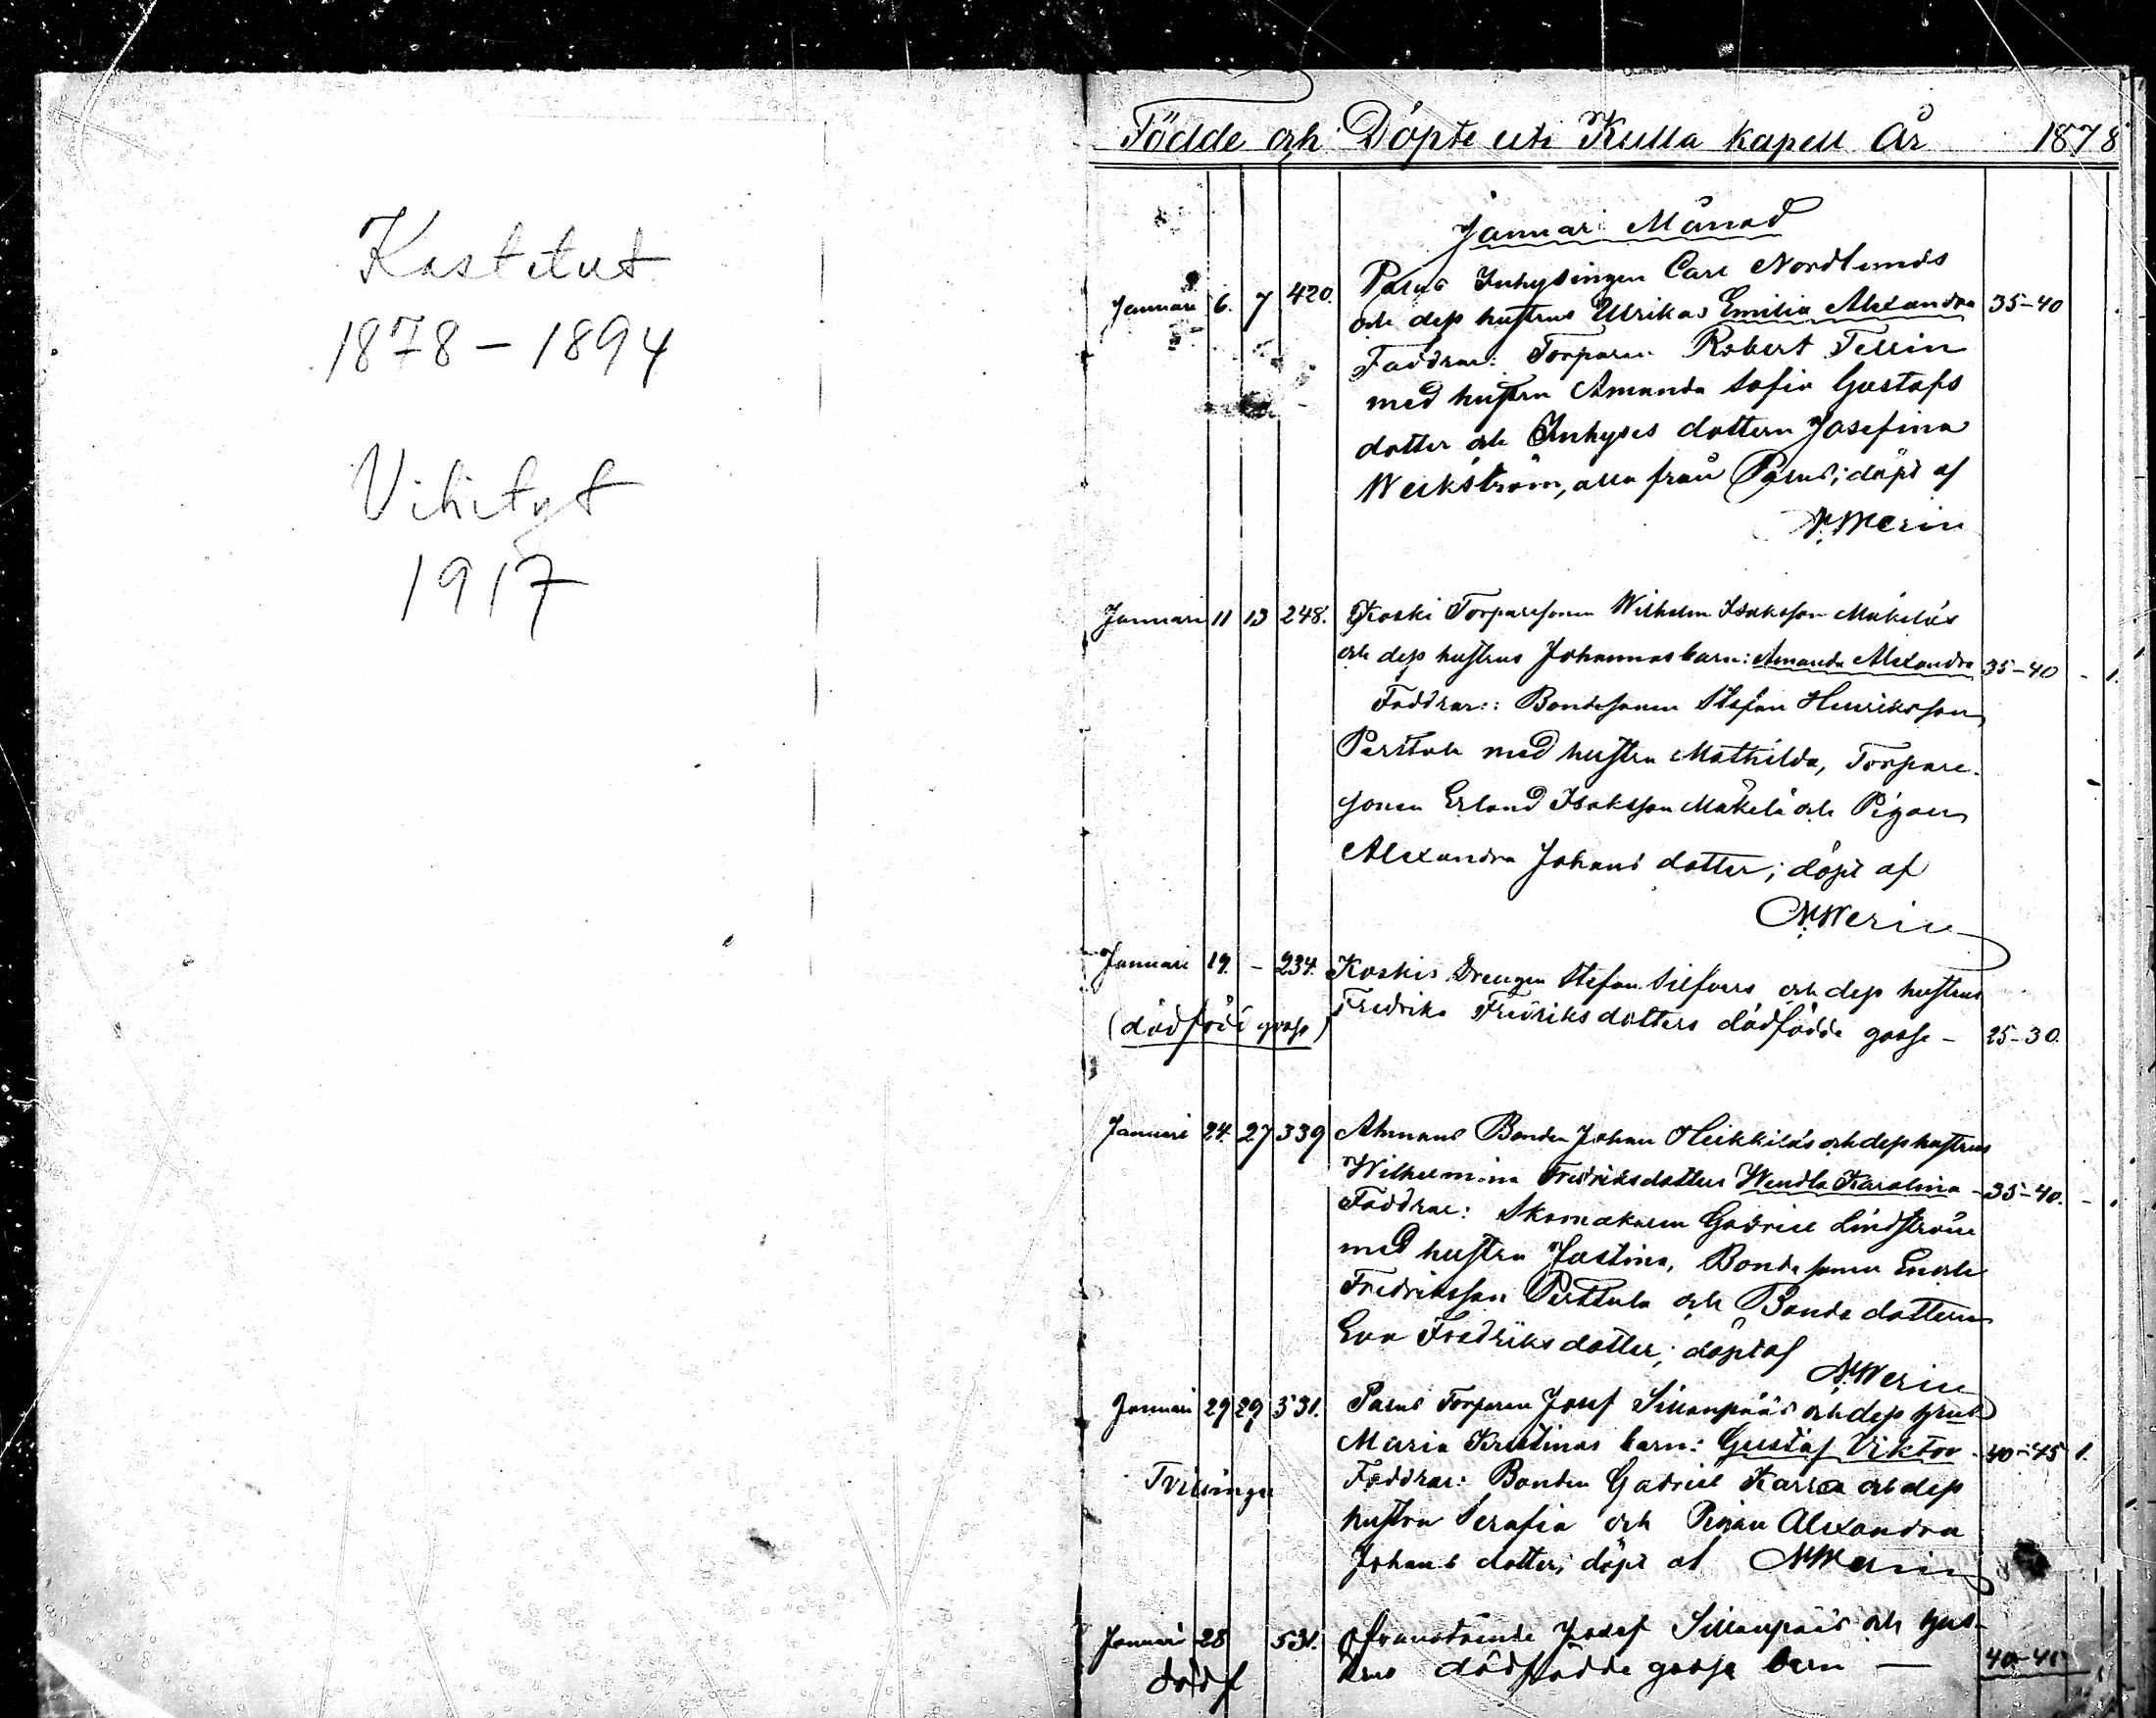 Kastetut
1878 – 1894
Vihityt
1917
Födde och Döpte uti Kulla kapell År 1878
Januari Månad
Januari 6. 7 420. Palus Inhysingen Carl Nordlunds
och dess hustrus Ulrikas Emilia Alexandra 35–40
Faddrar: Torparen Robert Tellin
med hustru Amanda Sofia Gustafs
dotter och Inhyses dottern Josefina
Weckström, alla från Palus; döpt af
N. Merin
Januari 11 13 248. Koski Torparesonen Wilhelm Isaksson Mäkeläs
och dess hustrus Johannas barn: Amanda Alexandra 35–40 - 1.
Faddrar: Bondesonen Stefan Henriksson
Perttula med hustru Mathilda, Torpare-
sonen Erland Isaksson Mäkelä och Pigan
Alexandra Johans dotter; döpt af
N. Merin
Januari 19. – 234. Koskis Drengen Stefan Silfvers och dess hustrus
(dödfödt gosse) Fredrika Fredriksdotters dödfödde gosse – 25–30.
Januari 24. 27 339 Ahmaus Bonden Johan Heikkiläs och dess hustrus
Wilhelmina Fredriksdotters Wendla Karolina – 35–40. -
Faddrar: Skomakaren Gabriel Lindström
med hustru Justina, Bonde sonen Enok
Fredriksson Perttula och Bonde dottern
Eva Fredriks dotter; döpt af
N. Merin
Januari 29 29 531. Palus Torparen Josef Sillanpääs och dess hustrus
Maria Kristinas barn: Gustaf Viktor – 40–45 1.
Tvillingar Faddrar: Bonden Gabriel Karra och dess
hustru Serafia och Pigan Alexandra
Johans dotter; döpt af N. Merin
Januari 28 531. Ofvanstående Josef Sillanpääs och hus-
dödf trus dödfödde gosse barn — 40–45